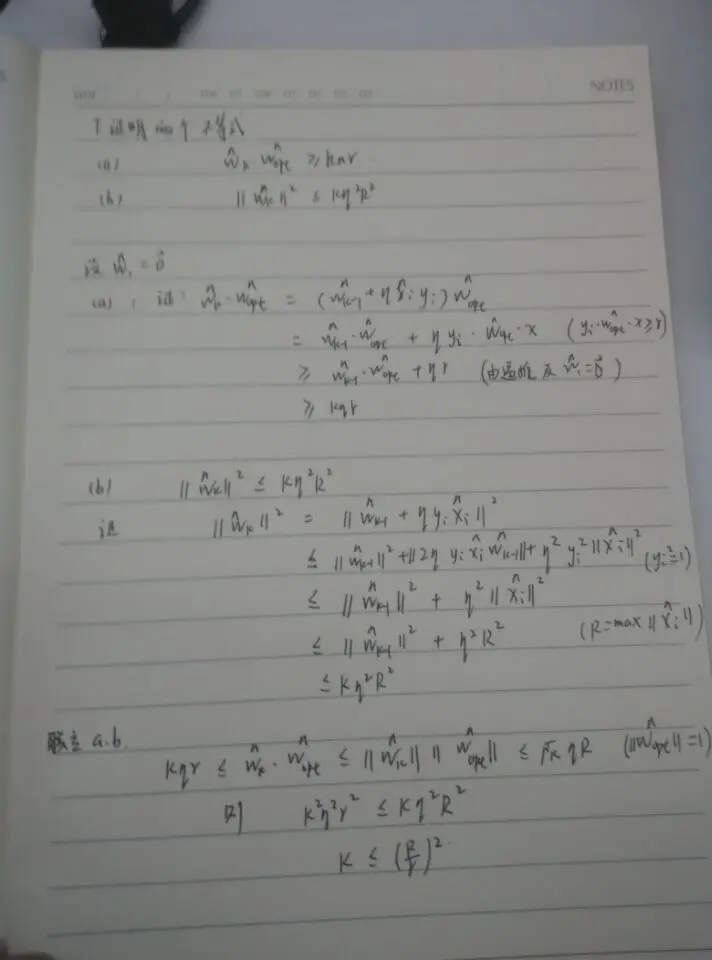 NOTES
证明两个不等式
(a) ŵₖ·ŵopt ≥ kηγ
(b) ||ŵₖ||² ≤ kη²R²
设 ŵ₁ = 0⃗
(a), 证: ŵₖ·ŵopt = (ŵₖ₋₁ + η x̂ᵢ yᵢ) ŵopt
= ŵₖ₋₁·ŵopt + η yᵢ·ŵopt·x (yᵢ·ŵopt·x ≥ γ)
≥ ŵₖ₋₁·ŵopt + ηγ (由递推及 ŵ₁ = 0⃗)
≥ kηγ
(b) ||ŵₖ||² ≤ kη²R²
证 ||ŵₖ||² = ||ŵₖ₋₁ + η yᵢ x̂ᵢ||²
≤ ||ŵₖ₋₁||² + ||2η yᵢ x̂ᵢ ŵₖ₋₁|| + η² yᵢ² ||x̂ᵢ||² (yᵢ²=1)
≤ ||ŵₖ₋₁||² + η² ||x̂ᵢ||²
≤ ||ŵₖ₋₁||² + η²R² (R = max ||x̂ᵢ||)
≤ kη²R²
联立 a.b.
kηγ ≤ ŵₖ·ŵopt ≤ ||ŵₖ|| ||ŵopt|| ≤ √k ηR (||ŵopt|| = 1)
则 k²η²γ² ≤ kη²R²
k ≤ (R/γ)²